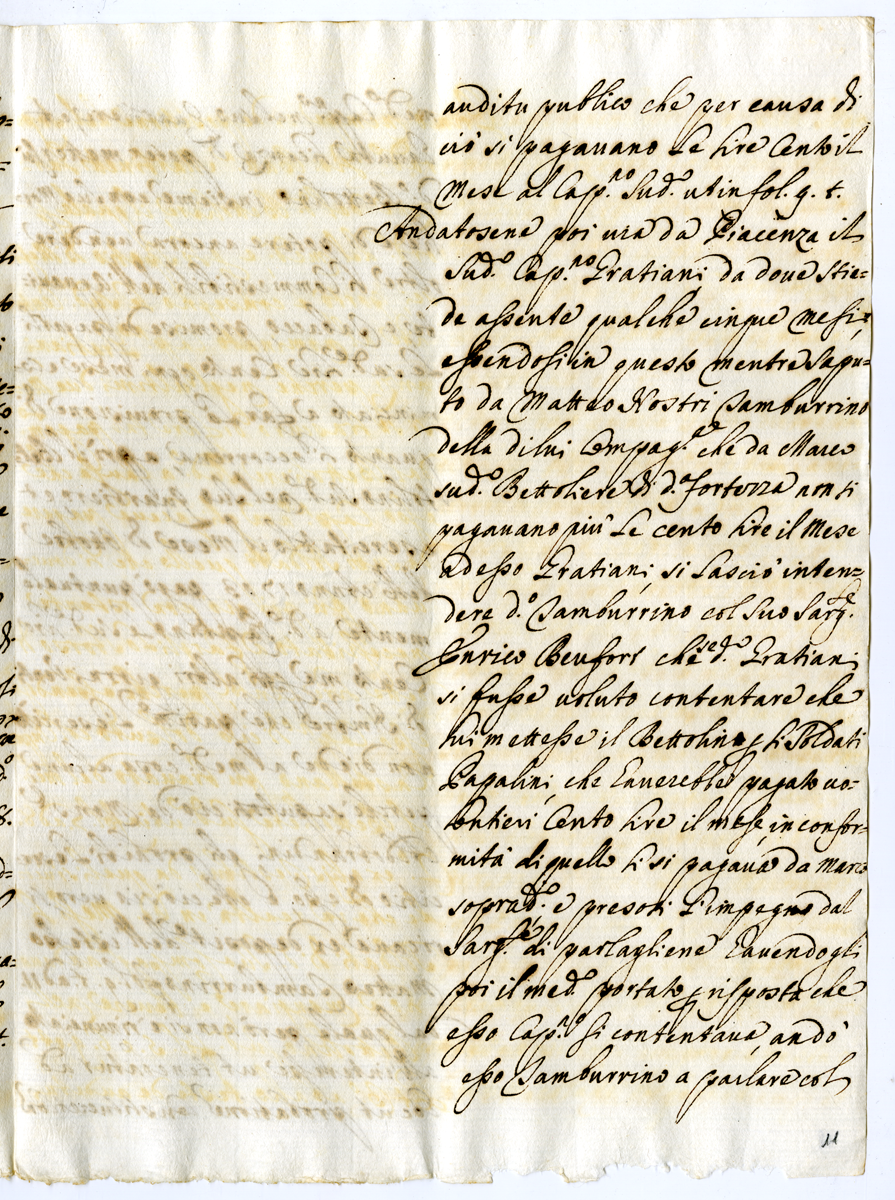 auditu publico che per causa di
ciò si pagauano Le lire Cento il
Mese al Cap.no Sud.o ut in fol. 9. t.
Andatosene poi uia da Piacenza il
Sud.o Cap.no Gratiani da doue stie=
de assente qualche cinque Mesi,
essendosi in questo mentre Sapu=
to da Matteo Nostri Tamburrino
della di lui Compag.a che da Marco
sud.o Bettoliere di d.a fortezza non si
pagauano più Le cento lire il Mese
ad esso Gratiani, si Lasciò inten=
dere d.o Tamburrino col Suo Sarg.te
Enrico Beufort che se d.o Gratiani
si fusse uoluto contentare che
lui mettesse il Bettolin p li Soldati
Papalini, che Lauerebbe pagato uo=
lontieri Cento lire il mese, in confor=
mità di quello li si pagaua da Marco
soprad.o, e presosi L'impegno dal
Sarg.te di parlagliene Lauendogli
poi il med.o portato p risposta che
esso Cap.no si contentaua, andò
esso Tamburrino a parlare col
11